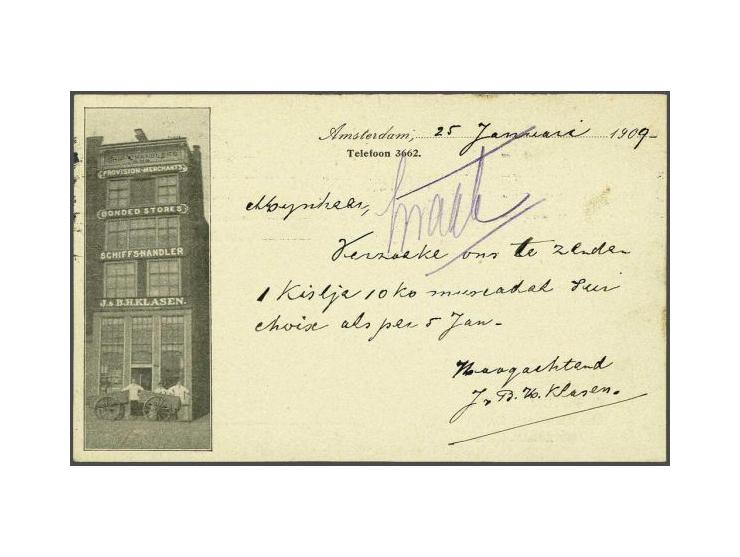 PROVISION-MERCHANTS
BONDED STORES
SCHIFFS-HANDLER
J. & B.H. KLASEN.
Amsterdam, 25 Januari 1909-
Telefoon 3662.
Mynheer,
Verzoeke ons te zenden
1 Kistja 10 ko muscadal
choix als per 5 Jan-
Hoogachtend
J. & B. H. Klasen.